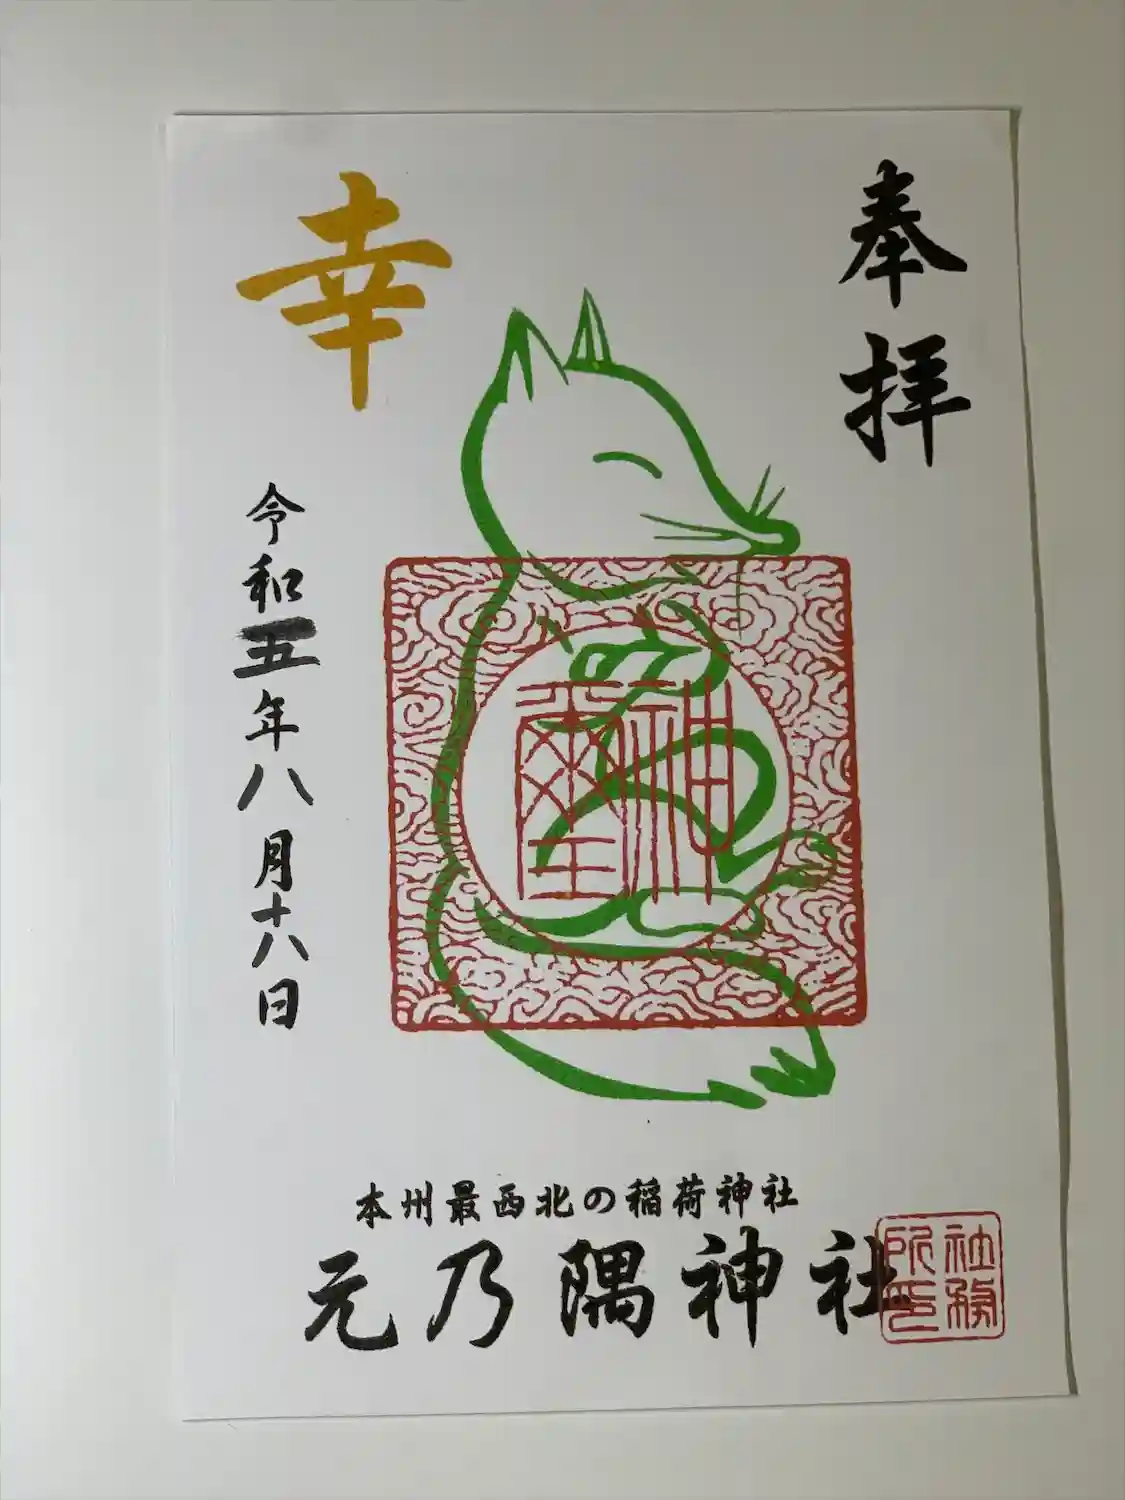 奉拝
幸
令和五年八月十八日
神璽
本州最西北の稲荷神社
元乃隅神社
社務所印